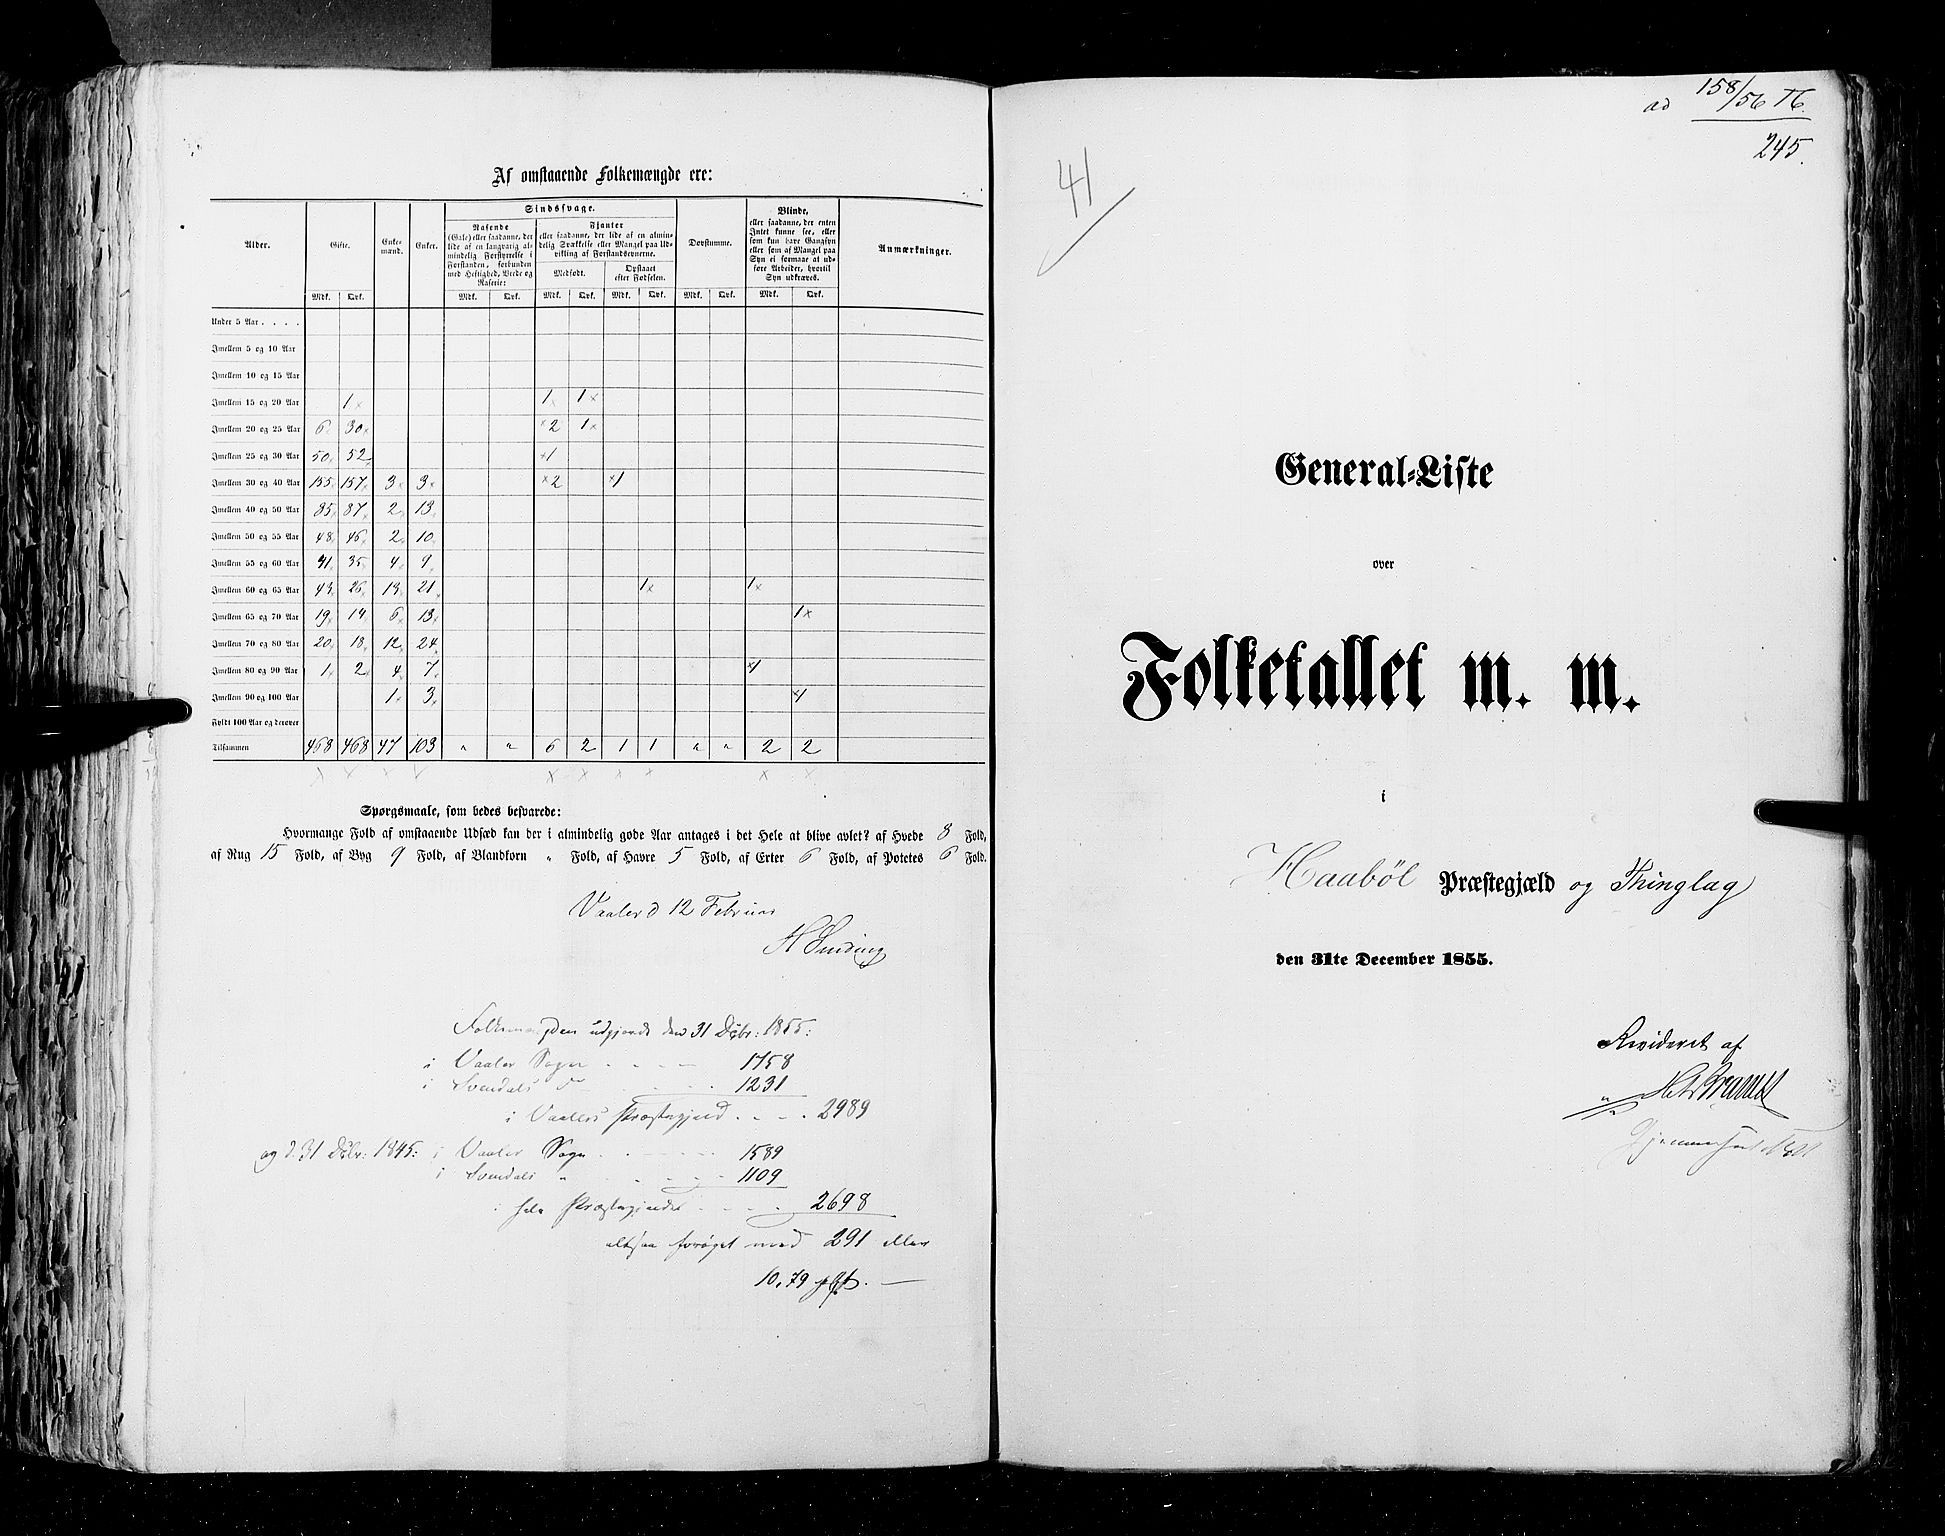 Af omstaaende Folkemængde ere:
Alder. Gifte. Enkemænd. Enker. Sindssvage. Døvstumme. Blinde, Anmærkninger.
Rasende (Gale) eller saadanne, der lide af en langvarig almindelig Forstyrrelse i Forstanden, forbunden med Heftighed, Vrede og Raserie:
Fjanter eller saadanne, der lide af en almindelig Svækkelse eller Mangel paa Udvikling af Forstandsevnerne.
eller saadanne, der enten Intet kunne see, eller som kun have Gangsyn eller som af Mangel paa Syn ei formaae at udføre Arbeider, hvortil Syn udkræves.
Medfødt. Opstaaet efter Fødselen.
Mdk. Qvk. Mdk. Qvk. Mdk. Qvk. Mdk. Qvk. Mdk. Qvk. Mdk. Qvk.
Under 5 Aar . . . .
Imellem 5 og 10 Aar
Imellem 10 og 15 Aar
Imellem 15 og 20 Aar 1 1 1
Imellem 20 og 25 Aar 6 30 2 1
Imellem 25 og 30 Aar 50 52 1
Imellem 30 og 40 Aar 155 157 3 3 2 1
Imellem 40 og 50 Aar 85 87 2 13
Imellem 50 og 55 Aar 48 46 2 10
Imellem 55 og 60 Aar 41 35 4 9
Imellem 60 og 65 Aar 43 26 13 21 1 1
Imellem 65 og 70 Aar 19 14 6 13 1
Imellem 70 og 80 Aar 20 18 12 24
Imellem 80 og 90 Aar 1 2 4 7 1
Imellem 90 og 100 Aar 1 3 1
Fyldt 100 Aar og derover
Tilsammen 468 468 47 103 " " 6 2 1 1 " " 2 2
Spørgsmaale, som bedes besvarede:
Hvormange Fold af omstaaende Udsæd kan der i almindelig gode Aar antages i det Hele at blive avlet? af Hvede 8 Fold,
af Rug 15 Fold, af Byg 9 Fold, af Blandkorn " Fold, af Havre 5 Fold, af Erter 6 Fold, af Potetes 6 Fold.
Vaaler d 12 Februar
H Sinding
Folkemængden udgjorde den 31 Dcbr: 1855:
i Vaaler Sogn 1758
i Svendals do 1231
i Vaalers Præstegjeld 2989
og d. 31 Dcbr: 1845: i Vaaler Sogn 1589
i Svendals " 1109
i hele Præstegjeldet 2698
altsaa forøget med 291 eller
10,79 pCt.
ad 158/56 T6.
245.
41
General-Liste
over
Folketallet m. m.
i
Haabøl Præstegjæld og Thinglag
den 31te December 1855.
Revideret af